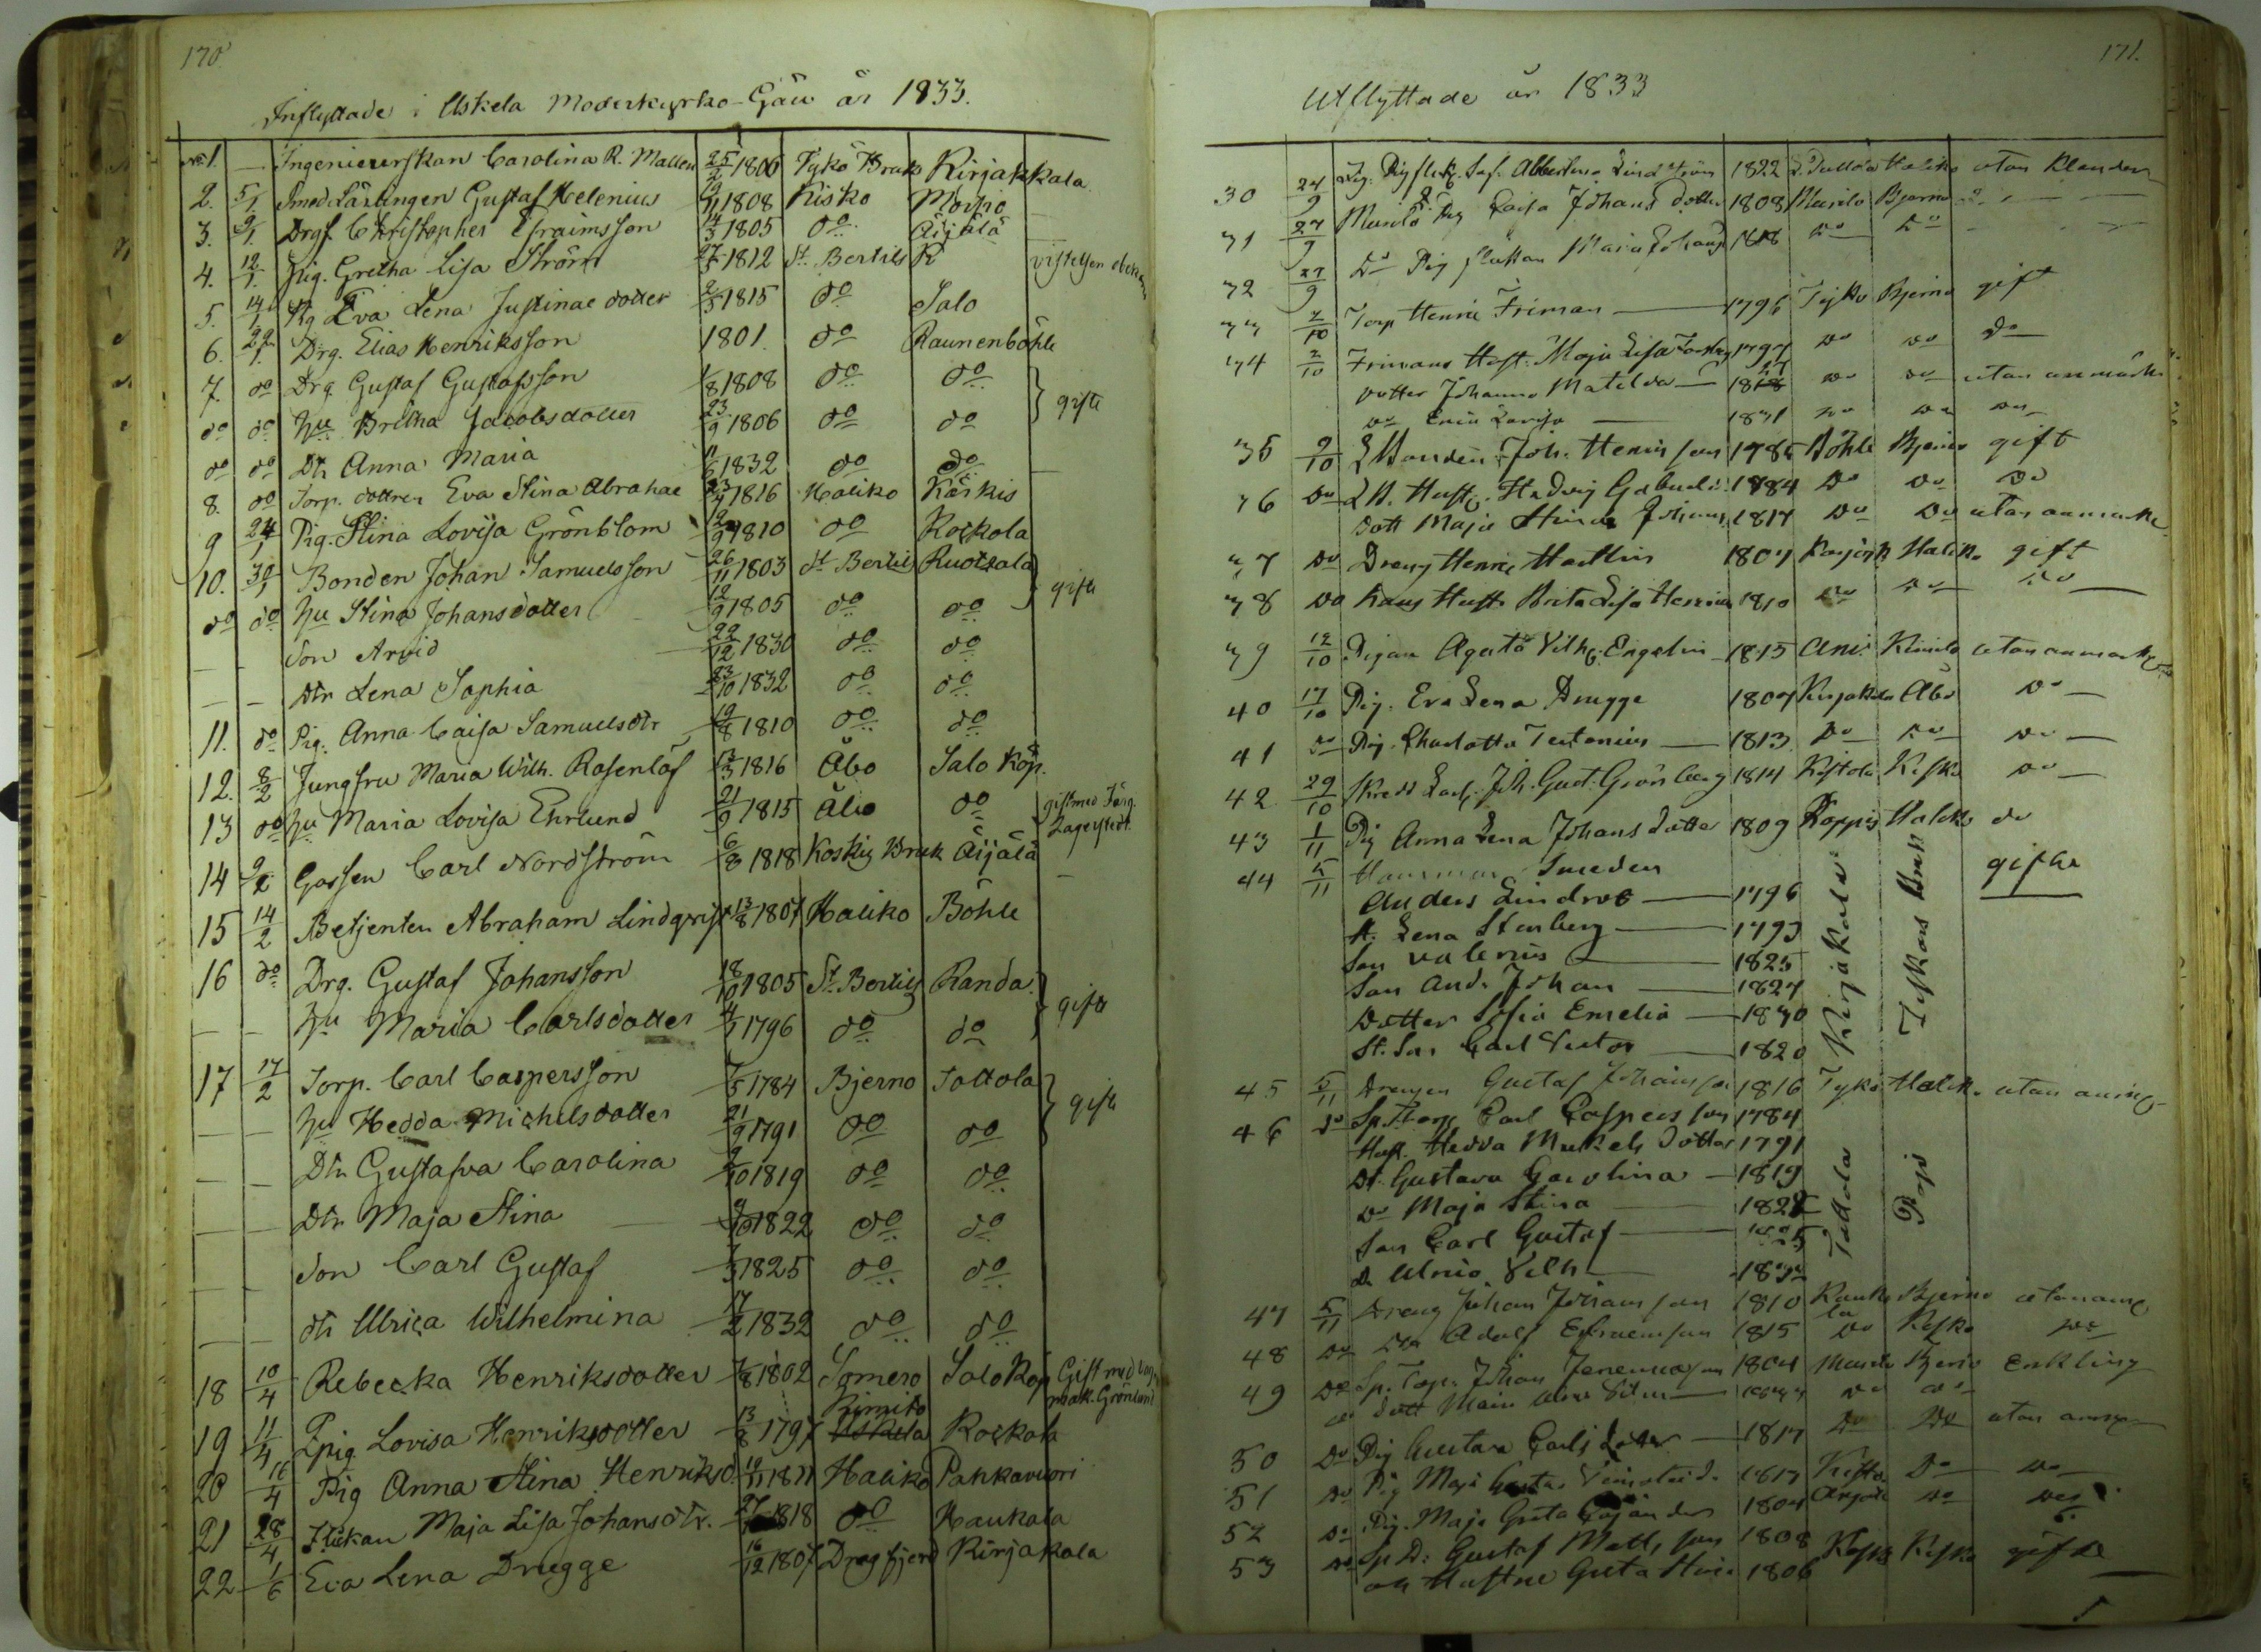 170
Inflyttade i Uskela Moderkyrko-Gäll år 1833.
No 1. — Ingenieurskan Carolina R. Mallen 25/2 1800 Tykö Bruk Kirjakkala
2. 5/1 Smed Lärlingen Gustaf Helenius 19/11 1808 Kisko Moisio
3. 9/1. Drgf. Christopher Efraimsson 14/3 1805 do Äijälä
4. 12/1. Pig. Gretha Lisa Ström 27/5 1812 St. Bertils R vistelsen
5. 14/1 Pig Eva Lena Justinae dotter 2/5 1815 do Salo
6. 22/1. Drg. Elias Henriksson 1801. do Raunenböhle
7. do Drg. Gustaf Gustafsson 1/8 1808 do do gifte
do do Hu Britha Jacobsdotter 23/9 1806 do do
do do Dtr Anna Maria 11/6 1832 do do
8. do Torp. dottren Eva Stina Abrahae 23/4 1816 Haliko Kärkis
9 24/1 Pig. Stina Lovisa Grönblom 12/9 1810 do Koskola
10. 30/1 Bonden Johan Samuelsson 26/11 1803 St Bertils Ruotsala gifte
do do Hu Stina Johansdotter 12/9 1805 do do
— — Son Arvid 22/12 1830 do do
— — Dtr Lena Sophia 23/10 1832 do do
11. do Pig. Anna Caisa Samuelsdtr 19/8 1810 do do
12. 8/2 Jungfru Maria Wilh. Rosenlöf 1816 Åbo Salo Köp.
13 do Hu Maria Lovisa Ehrlund 21/9 1815 Åbo do gift med Färg. Lagerstedt.
14 9/2 Gossen Carl Nordström 6/8 1818 Koskis Bruk Äijälä —
15 14/2 Betjenten Abraham Lindqvist 13/8 1807 Haliko Böhle
16 do Drg. Gustaf Johansson 18/10 1805 St. Bertils Randa gifte
— — Hu Maria Carlsdotter 4/1 1796 do do
17 17/2 Torp. Carl Caspersson 7/5 1784 Bjerno Tottola gifte
— — Hu Hedda Michelsdotter 21/9 1791 do do
— — Dtr Gustafva Carolina 9/10 1819 do do
— — Dtr Maja Stina 9/10 1822 do do
— — Son Carl Gustaf 7/3 1825 do do
— — dtr Ulrica Wilhelmina 17/2 1832 do do
18 10/4 Rebecka Henriksdotter 7/8 1802 Somero Salo Köp Gift med mak. Grönlund
19 11/4 Pig Lovisa Henriksdotter 13/8 1797 Kimito Uskela Koskola
20 16/4 Pig Anna Stina Henriksd. 19/11 1811 Haliko Pahkavuori
21 28/4 Flickan Maja Lisa Johansdtr. 27 1818 do Haukala
22 1/6 Eva Lena Drugge 16/12 1807 Dragfjerd Kirjakala
171.
Utflyttade år 1833
30 24/9 Albertina Lindström 1822 Haliko utan Klander
31 27/9 Munilo Pig Caisa Johans dotter 1808 Munilo Bjerno
32 27/9 Do Pig flickan Maria Johans 1818 Do Do
33 2/10 Torp Henric Friman — 1796 Tyko Bjerno gift
34 2/10 Frimans Hust. Maja Lisa 1797 Do Do Do
dotter Johanna Matelda — Do Do utan anmärk
Do — 1831 Do Do Do
35 9/10 Bonden Joh. Henrisson 1785 Böhle Bjerno gift
36 Do Hust. Hedvig Gabriels 1784 Do Do Do
Dott Maja Stina Johans 1817 Do Do utan anmärk
37 Do Dreng Henric Hedlin 1807 Haliko gift
38 Do Hans Hust. Brita Lisa Henrics 1810 Do Do Do
39 12/10 Pigan Agata Vilh. Engelin 1815 Kimito utan anmärk
40 17/10 Pig. Eva Lena Drugge 1807 Kirjakala Åbo Do
41 Do Pig. Charlotta Testenius — 1813 Do Do Do
42 29/10 Skredd Joh. Gust. Grönberg 1814 Kistola Kisko Do
43 1/11 Pig Anna Lena Johans dotter 1809 Koppis Haliko do
44 5/11 Smeden
Anders Lindroos — 1796 Kirjakala Fiskars Bruk gifta
H. Lena Stenberg — 1793
Son Valerius — 1825
Son And. Johan — 1827
Dotter Sofia Emelia — 1830
St. Son Carl Victor — 1820
45 5/11 Drengen Gustaf Johansson 1816 Tyko Haliko utan anm.
46 do Sp. Torp Carl Caspersson 1784 Tottola
Hust. Hedda Mickels dotter 1791
Dt. Gustava Carolina — 1819
Do Maja Stina — 1822
Son Carl Gustaf — 1825
D. Ulrica Vilh — 1832
47 5/11 Dreng Johan Johansson 1810 Bjerno utan anm
48 Do Do Adolf Efraimson 1815 Do Kisko Do
49 Do Sp. Torp. Johan Jeremiasson 1804 Bjerno Enkling
50 Do Pig Gustava Carls dotter — 1817 Do Do utan anm
51 Do Pig Maja 1817 Do Do
52 Do Pig. Maja Greta 1804 Do Do
53 Do Sp. D. Gustaf Matts son 1808 Kisko gifte
och Hustru Greta Stina 1806